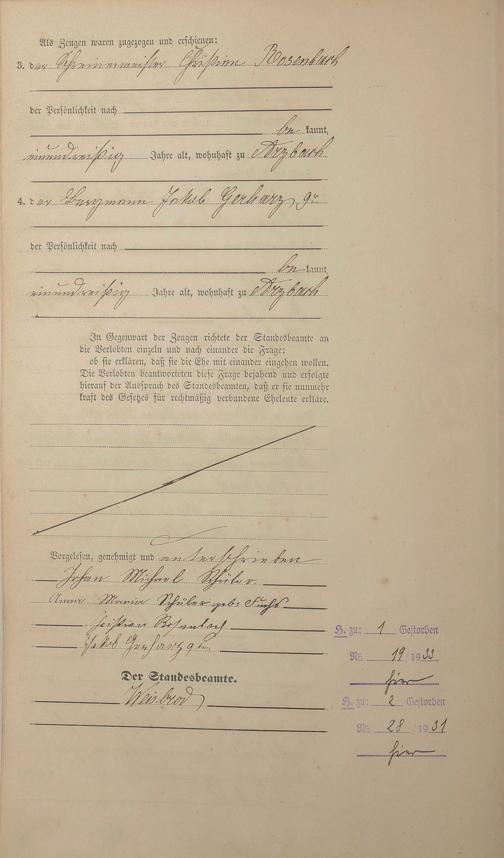 Als Zeugen waren zugezogen und erschienen:
3. der Schreinermeister Christian Rosenbach
der Persönlichkeit nach
be kannt,
einunddreißig Jahre alt, wohnhaft zu Arzbach
4. der Bergmann Jakob Gerharz, gr
der Persönlichkeit nach
be kannt,
einunddreißig Jahre alt, wohnhaft zu Arzbach
In Gegenwart der Zeugen richtete der Standesbeamte an
die Verlobten einzeln und nach einander die Frage:
ob sie erklären, daß sie die Ehe mit einander eingehen wollen.
Die Verlobten beantworteten diese Frage bejahend und erfolgte
hierauf der Ausspruch des Standesbeamten, daß er sie nunmehr
kraft des Gesetzes für rechtmäßig verbundene Eheleute erkläre.
Vorgelesen, genehmigt und unterschrieben
Johan Michael Schüler
Anna Maria Schüler geb. Fuchs
Christian Rosenbach
Jakob Gerharz
H. zu: 1 Gestorben
Nr. 19/1933
hier
Der Standesbeamte.
Weisbrod
H. zu: 2 Gestorben
Nr. 28/1931
hier